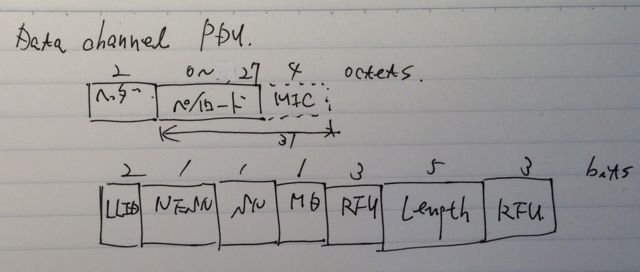 Data channel PDU.
2 0~27 4 octets.
ヘッダー ペイロード MIC
31
2 1 1 1 3 5 3 bits
LLID NESN SN MD RFU Length RFU